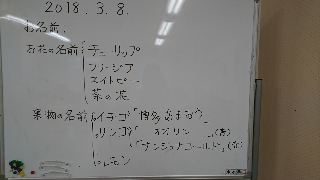 2018.3.8.
お名前.
お花の名前 チューリップ
フリージア
スイトピー
菜の花
果物の名前 イチゴ「博多あまおう」
リンゴ「オウリン」(青)
「サンジョナゴールド」(赤)
レモン